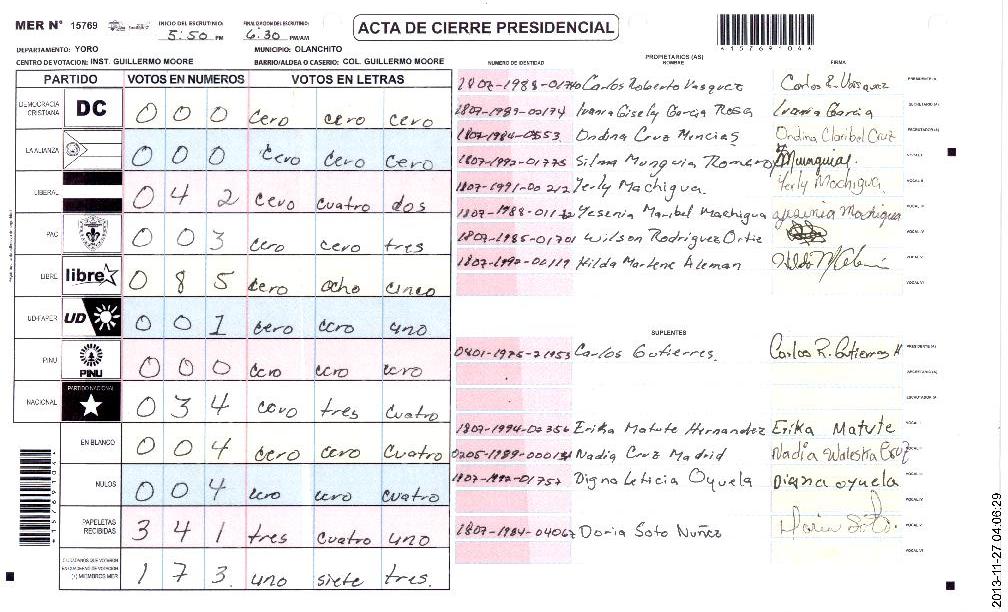 MER N° 15769
INICIO DEL ESCRUTINIO: 5:50 PM
FINALIZACION DEL ESCRUTINIO: 6:30 PM/AM
ACTA DE CIERRE PRESIDENCIAL
*15769106*
DEPARTAMENTO: YORO
MUNICIPIO: OLANCHITO
CENTRO DE VOTACION: INST. GUILLERMO MOORE
BARRIO/ALDEA O CASERIO: COL. GUILLERMO MOORE
PARTIDO VOTOS EN NUMEROS VOTOS EN LETRAS
DEMOCRACIA CRISTIANA DC 0 0 0 cero cero cero
LA ALIANZA 0 0 0 cero cero cero
LIBERAL 0 4 2 cero cuatro dos
PAC 0 0 3 cero cero tres
LIBRE libre 0 8 5 cero ocho cinco
UD-FAPER UD 0 0 1 cero cero uno
PINU PINU 0 0 0 cero cero cero
NACIONAL PARTIDO NACIONAL 0 3 4 cero tres cuatro
EN BLANCO 0 0 4 cero cero cuatro
NULOS 0 0 4 cero cero cuatro
PAPELETAS RECIBIDAS 3 4 1 tres cuatro uno
CIUDADANOS QUE VOTARON EN CUADERNO DE VOTACION (+) MIEMBROS MER 1 7 3. uno siete tres.
*15769106*
NUMERO DE IDENTIDAD
PROPIETARIOS (AS)
NOMBRE
FIRMA
Carlos Roberto Vasquez Carlos R. Vasquez PRESIDENTE (A)
1807-1989-00174 Ivania Gisely Garcia Rosa Ivania Garcia SECRETARIO (A)
Ondina Cruz Mencias Ondina Claribel Cruz ESCRUTADOR (A)
1807-1992-01775 Silma Munguia Romero Munguia VOCAL I
1807-1991-00212 Yerly Machigua. Yerly Machigua. VOCAL II
Yesenia Maribel Machigua Yesenia Machigua VOCAL III
1807-1985-01701 Wilson Rodriguez Ortiz VOCAL IV
1807-1992-00119 Hilda Marlene Aleman VOCAL V
VOCAL VI
SUPLENTES
Carlos Gutierres. Carlos R. Gutierres H PRESIDENTE (A)
SECRETARIO (A)
ESCRUTADOR (A)
1807-1994-02356 Erika Matute Hernandez Erika Matute VOCAL I
Nadia Cruz Madrid Nadia Walestka Cruz VOCAL II
1807-1992-01757 Digna Leticia Oyuela Digna oyuela VOCAL III
VOCAL IV
1807-1984-04067 Doria Soto Nuñez Doria Soto. VOCAL V
VOCAL VI
2013-11-27 04:06:29